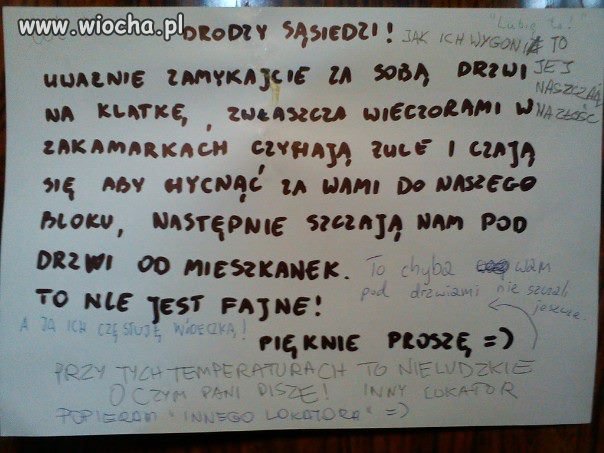 www.wiocha.pl
DRODZY SĄSIEDZI!
"Lubię to!"
JAK ICH WYGONIĆ TO
JEJ
NASZCZAJĄ
NA ZŁOŚĆ
UWAŻNIE ZAMYKAJCIE ZA SOBĄ DRZWI
NA KLATKĘ, ZWŁASZCZA WIECZORAMI W
ZAKAMARKACH CZYHAJĄ ŻULE I CZAJĄ
SIĘ ABY HYCNĄĆ ZA WAMI DO NASZEGO
BLOKU, NASTĘPNIE SZCZAJĄ NAM POD
DRZWI OD MIESZKANEK.
To chyba wam
pod drzwiami nie szczali
jeszcze.
TO NIE JEST FAJNE!
A JA ICH CZĘSTUJĘ WÓDECZKĄ!
PIĘKNIE PROSZĘ =)
PRZY TYCH TEMPERATURACH TO NIELUDZKIE
O CZYM PANI PISZE! INNY LOKATOR
POPIERAM "INNEGO LOKATORA" =)